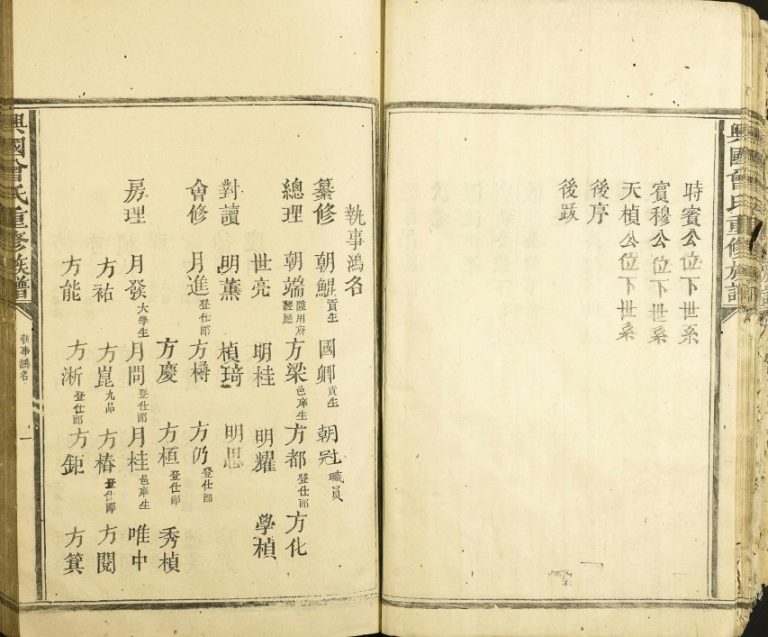 興國曾氏重修族譜
時賓公位下世系
賓穆公位下世系
天楨公位下世系
後序
後跋
執事鴻名
纂修 朝鯤貢生 國卿貢生 朝冠職員
總理 朝端 方梁邑庠生 方都登仕郎 方化
世亮 明桂 明耀 學楨
對讀 明薰 楨琦 明思
會修 月進登仕郎 方樽 方仍登仕郎
方慶 方桓登仕郎 秀楨
房理 月發大學生 月問登仕郎 月桂邑庠生 唯中
方祐 方崑九品 方椿登仕郎 方閱
方能 方淅登仕郎 方鉅 方箕
興國曾氏重修族譜
執事鴻名
一